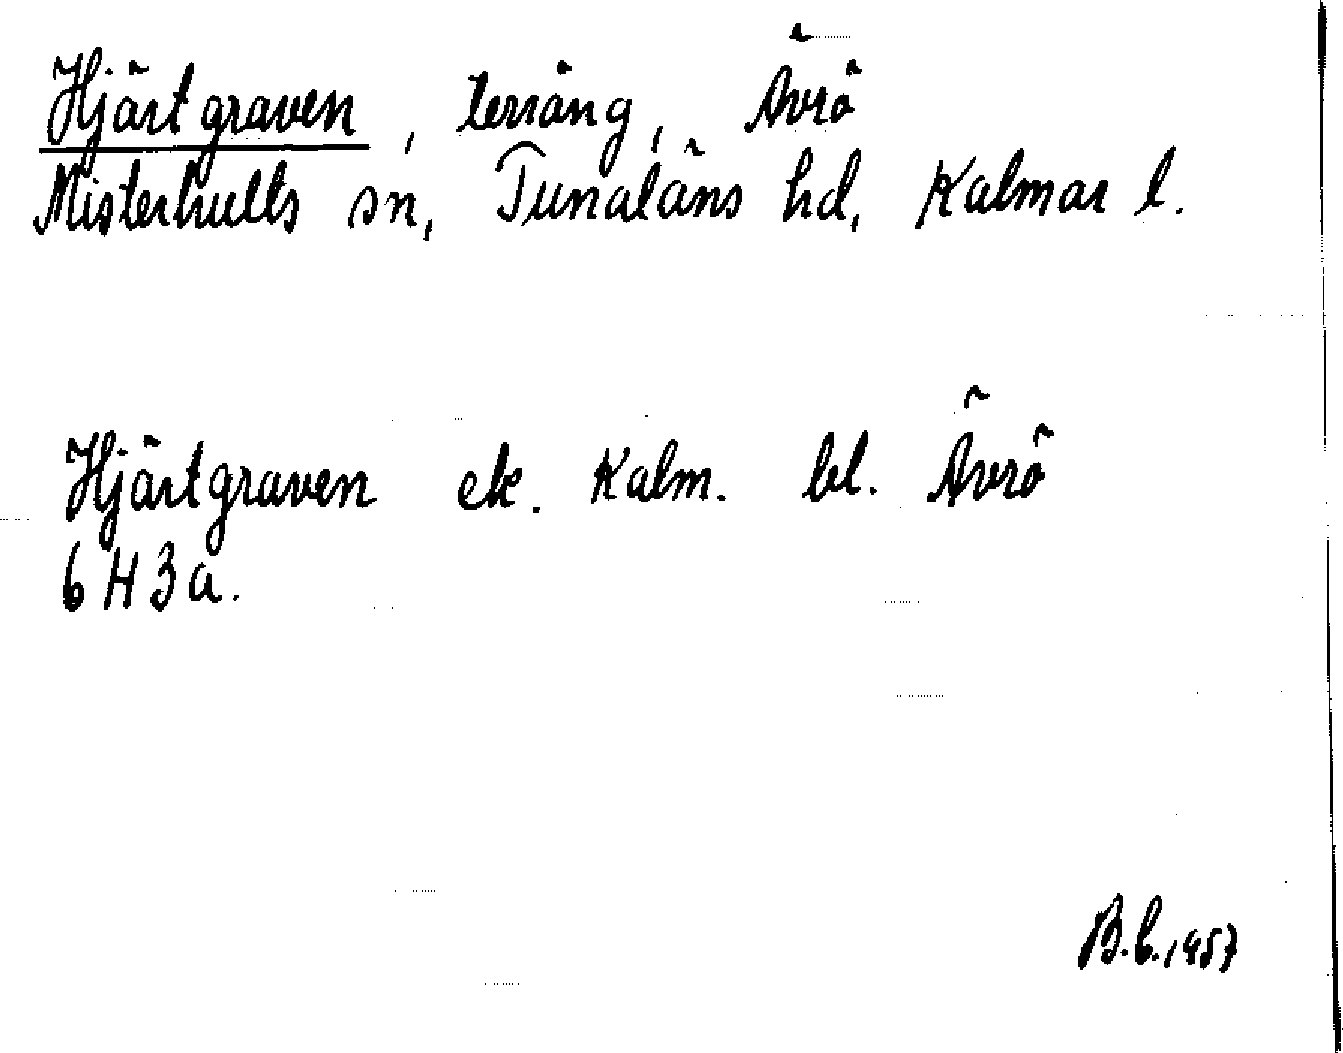 Hjärtgraven, terräng, Ävrö
Misterhults sn, Tunaläns hd, Kalmar l.
Hjärtgraven ek. Kalm. bl. Ävrö
6 H 3 a.
B.b. 1957